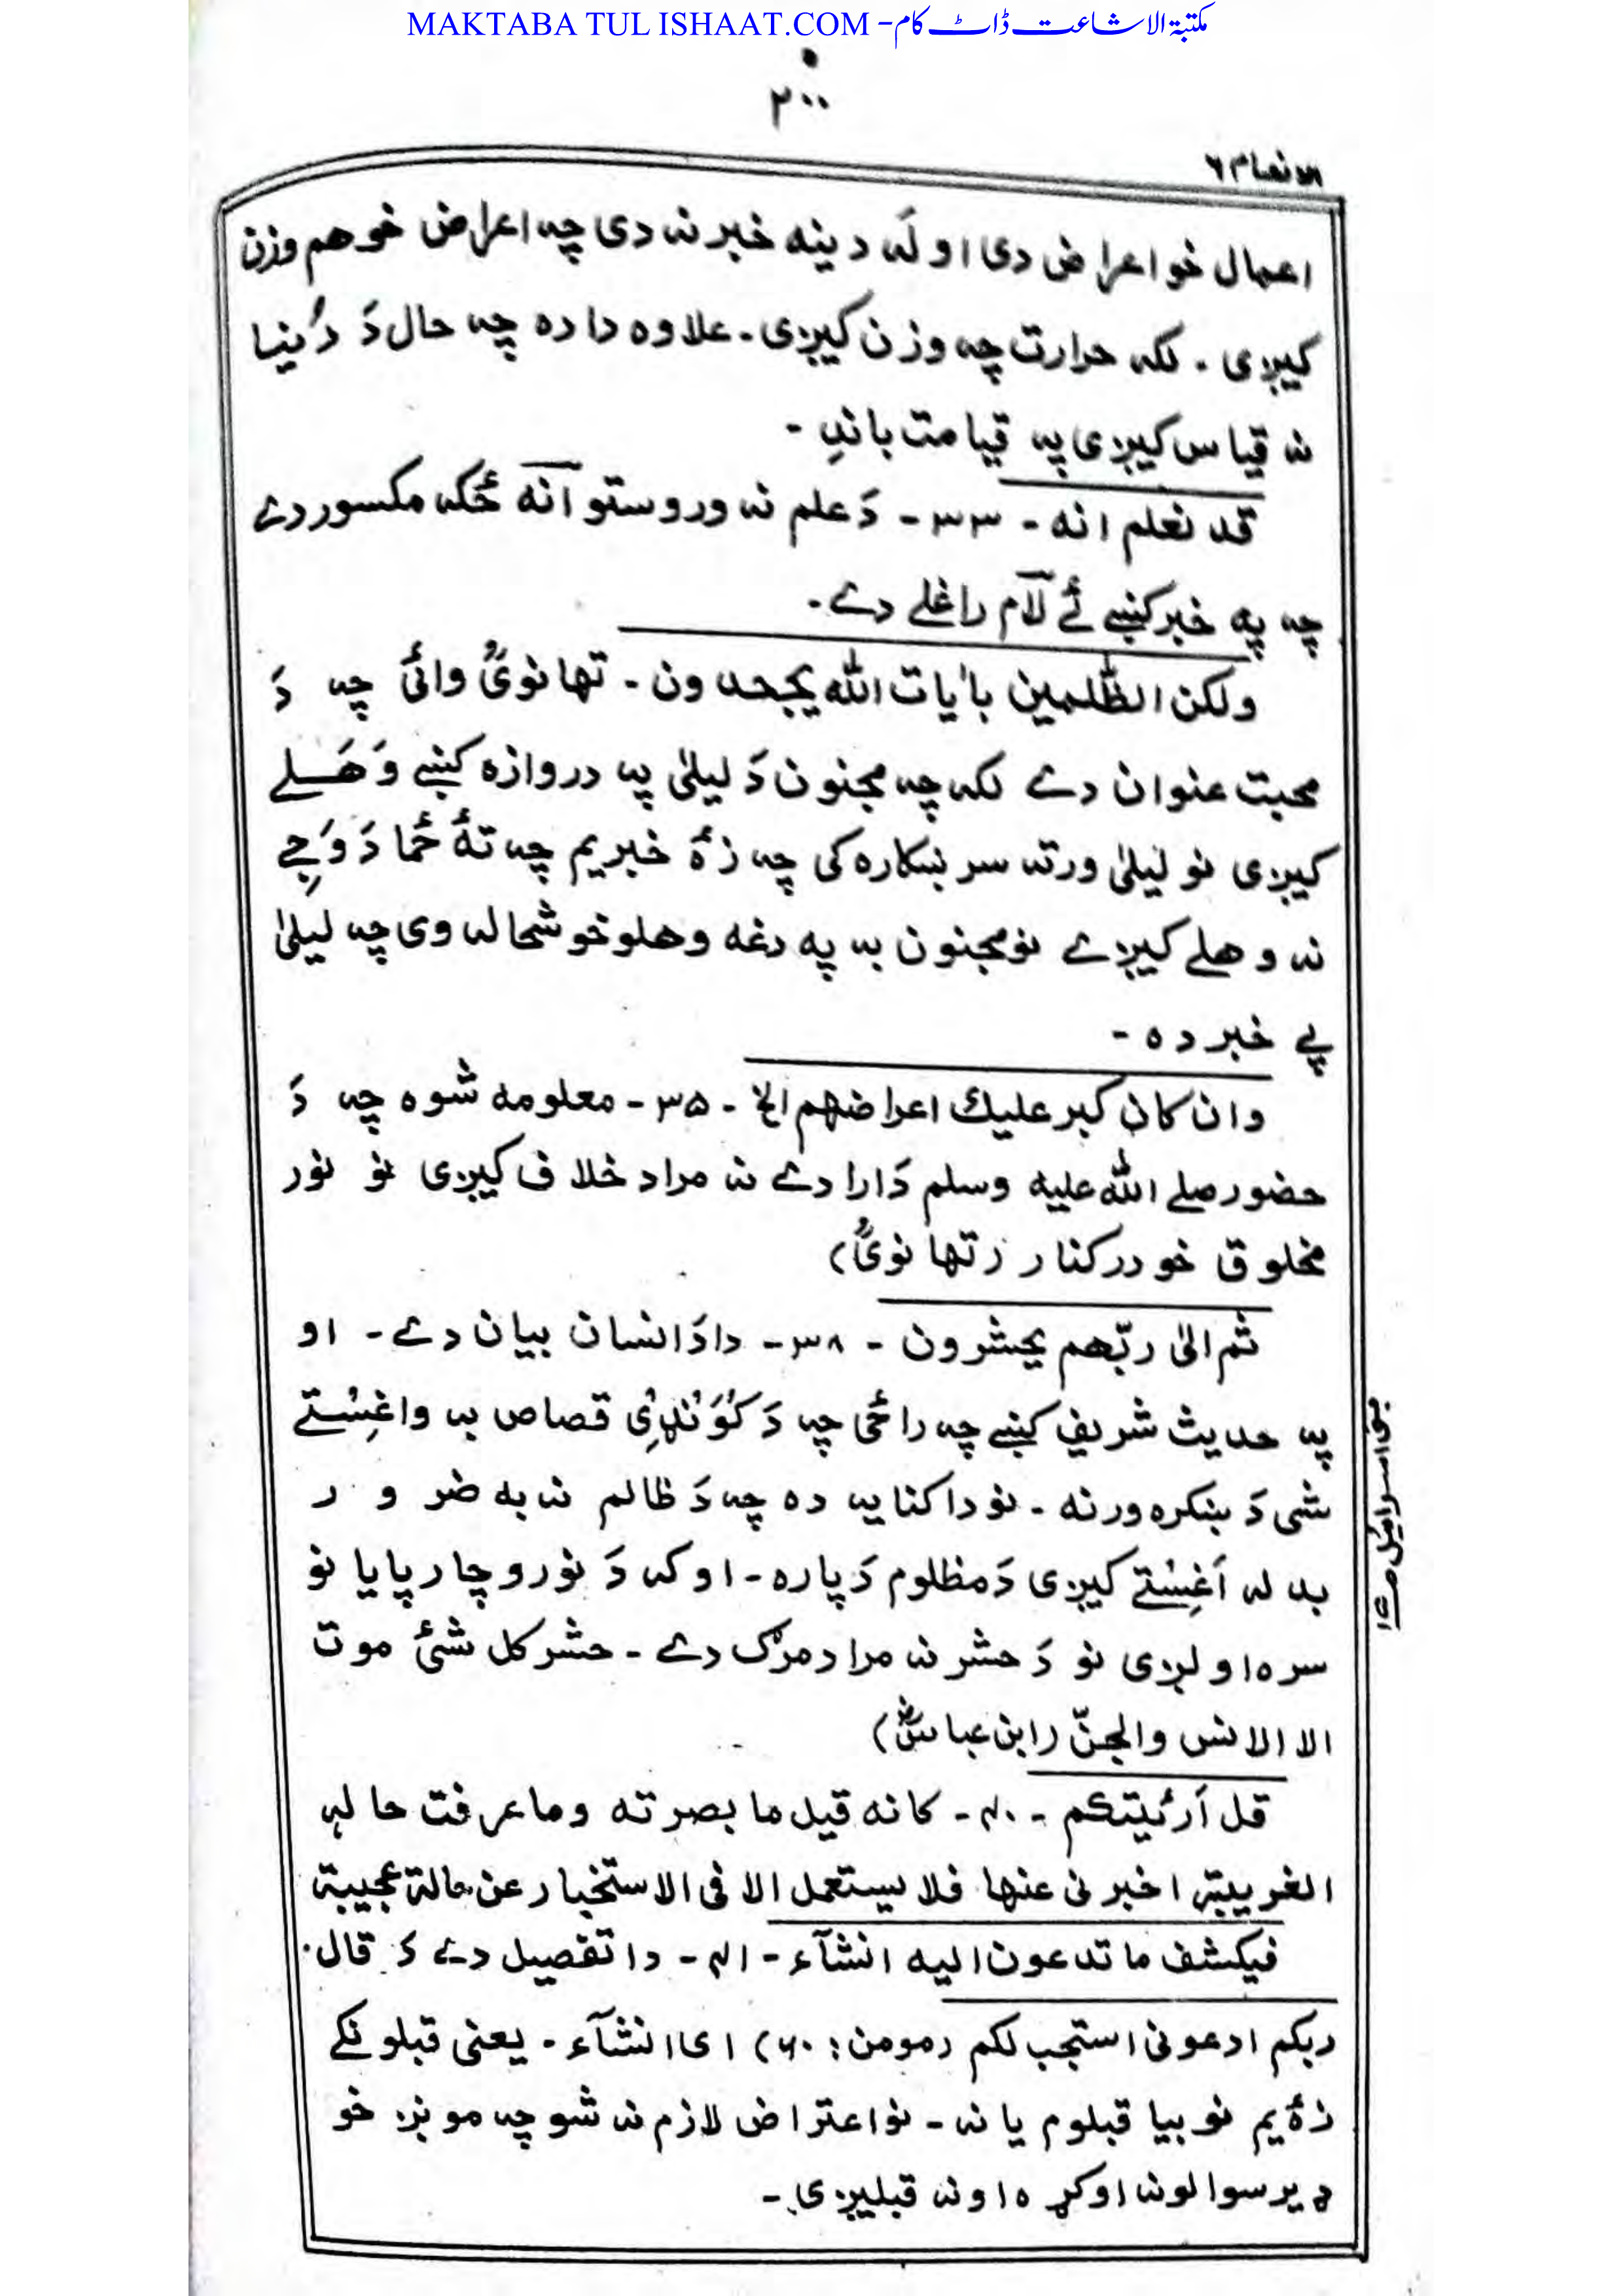 MAKTABA TUL ISHAAT.COM -مکتبۃ الاشاعت ڈاٹ کام
۲۰۰
الانعام ۶
اعمال خو اعراض دی او لَه دینه خبر نه دی چه اعراض خو هم وزن
کیږی . لکه حرارت چه وزن کیږی . علاوه دا ده چه حال دَ دُنیا
نه قیاس کیږی په قیامت باندِ -
قد نعلم انه - ۳۳ - دَ علم نه وروستو اَنه ځکه مکسور دے
چه په خبر کښے ئے لَام راغلے دے .
ولکن الظّٰلمین باٰیات اللّٰه یجحدون - تهانویؒ وائی چه دَ
محبت عنوان دے لکه چه مجنون دَ لیلیٰ په دروازه کښے وَهَلے
کیږی نو لیلیٰ ورته سر ښکاره کی چه زۀ خبر یم چه تۀ ځما دَ وَجِے
نه وهلے کیږے نو مجنون به په دغه وهلو خوشحاله وی چه لیلیٰ
پے خبر ده -
وان کان کبر علیك اعراضهم الخ - ۳۵ - معلومه شوه چه دَ
حضور صلے اللّٰه علیه وسلم دَ ارادے نه مراد خلاف کیږی نو نور
مخلوق خو درکنار (تهانویؒ)
ثم الیٰ ربّهم یحشرون - ۳۸ - دا دَ انسان بیان دے - او
په حدیث شریف کښے چه راځی چه دَ کُوَنډِی قصاص به واغِستے
شی دَ ښکره ورنه - نو دا کنایه ده چه دَ ظالم نه به ضرور
بدله اَغِستے کیږی دَ مظلوم دَ پاره - او که دَ نورو چارپایا نو
سره اولږی نو دَ حشر نه مراد مرګ دے - حشر کل شئ موت
الا الانس والجنّ (ابن عباسؓ)
قل اَرئیتکم - ۴۰ - کانه قیل ما بصرته وما عرفت حاله
الغریبة اخبرنی عنها فلا یستعمل الا فی الاستخبار عن حالة عجیبة
فیکشف ما تدعون الیه انشآء - ۴۱ - دا تفصیل دے دَ قال
ربکم ادعونی استجب لکم (مومن: ۶۰) ای انشآء - یعنی قبلونکے
زۀ یم نو بیا قبلوم یا نه - نو اعتراض لازم نه شو چه مونږ خو
ډیر سوالونه اوکړه او نه قبلیږی -